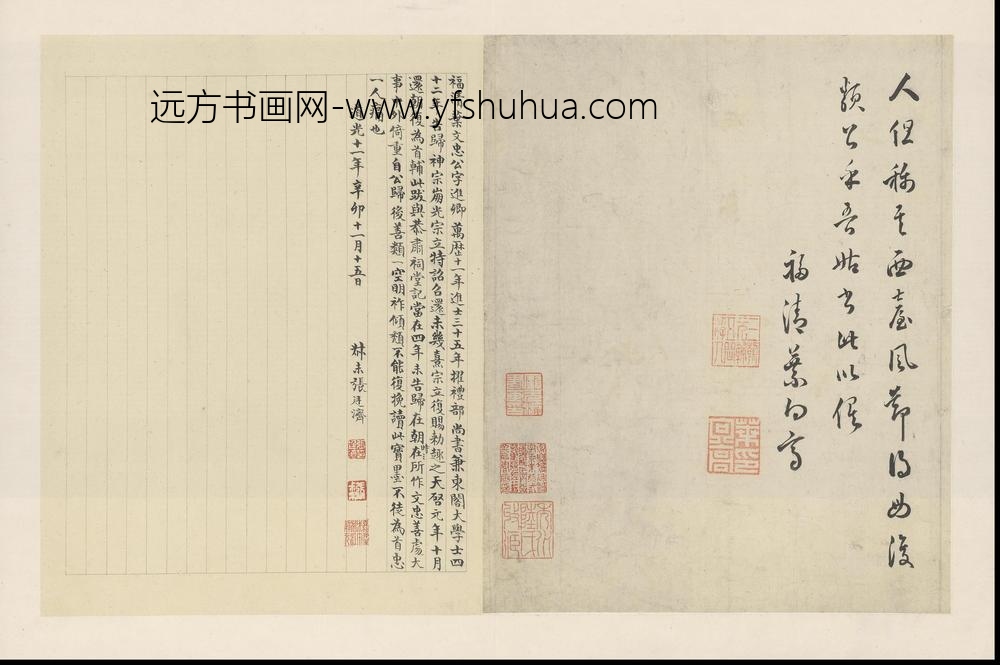 人但稱其西臺風節得毋復
類公乎吾姑書此以俟
福清葉向高
福清葉文忠公字進卿萬歷十一年進士三十五年擢禮部尚書兼東閣大學士四
十二年告歸神宗崩光宗立特詔召還未幾熹宗立復賜勅趣之天啓元年十月
還朝復為首輔此跋與恭肅祠堂記當在四年未告歸在朝時所作文忠善處大
事外倚重自公歸後善類一空明祚傾頹不能復挽讀此寶墨不徒為首忠
一人痛也
道光十一年辛卯十一月十五日
叔未張廷濟
远方书画网-www.yfshuhua.com